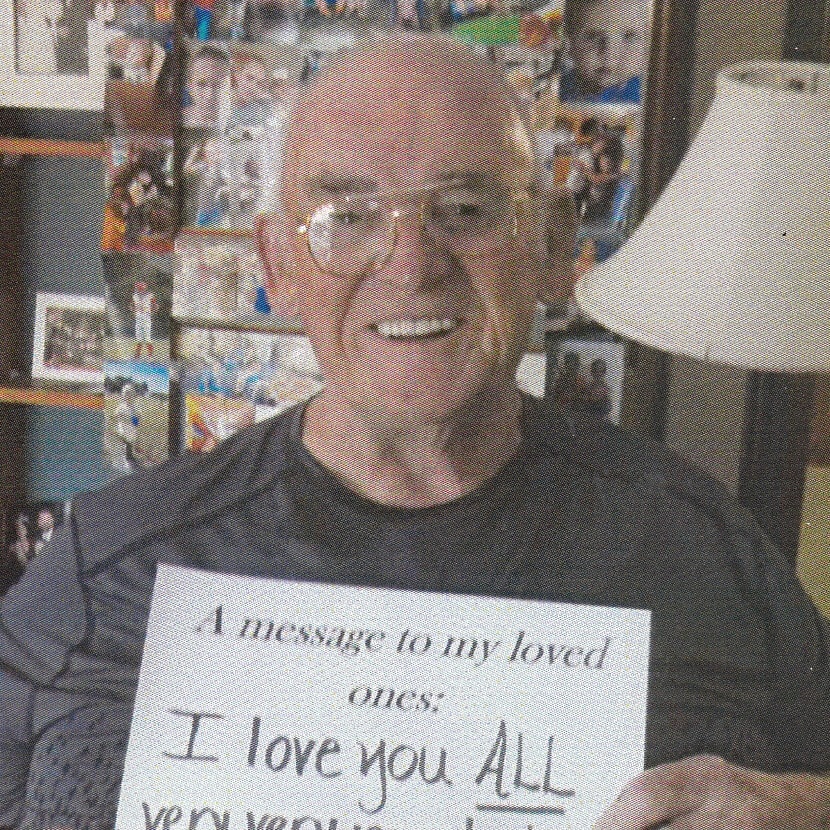 A message to my loved
ones:
I love you ALL
very very